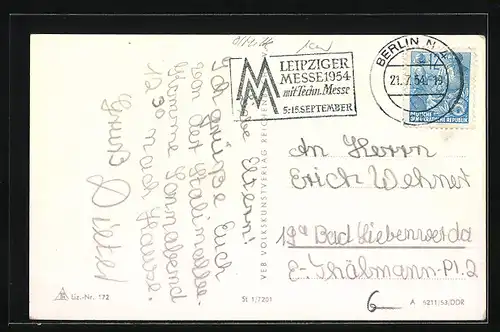 Liebe Eltern!
Ich grüße Euch
von der Stalinallee.
Komme Sonnabend
12 30 nach Hause.
Gruß Dieter
LEIPZIGER
MESSE 1954
mit Techn. Messe
5.-15. SEPTEMBER
BERLIN N 4
21.7.54.-19
DEUTSCHE
DEMOKRATISCHE REPUBLIK
An Herrn
Erich Wehner
19a Bad Liebenwerda
E-Thälmann-Pl. 2
6
VEB VOLKSKUNSTVERLAG
Liz.-Nr. 172
St 1/7201
A 5211/53/DDR